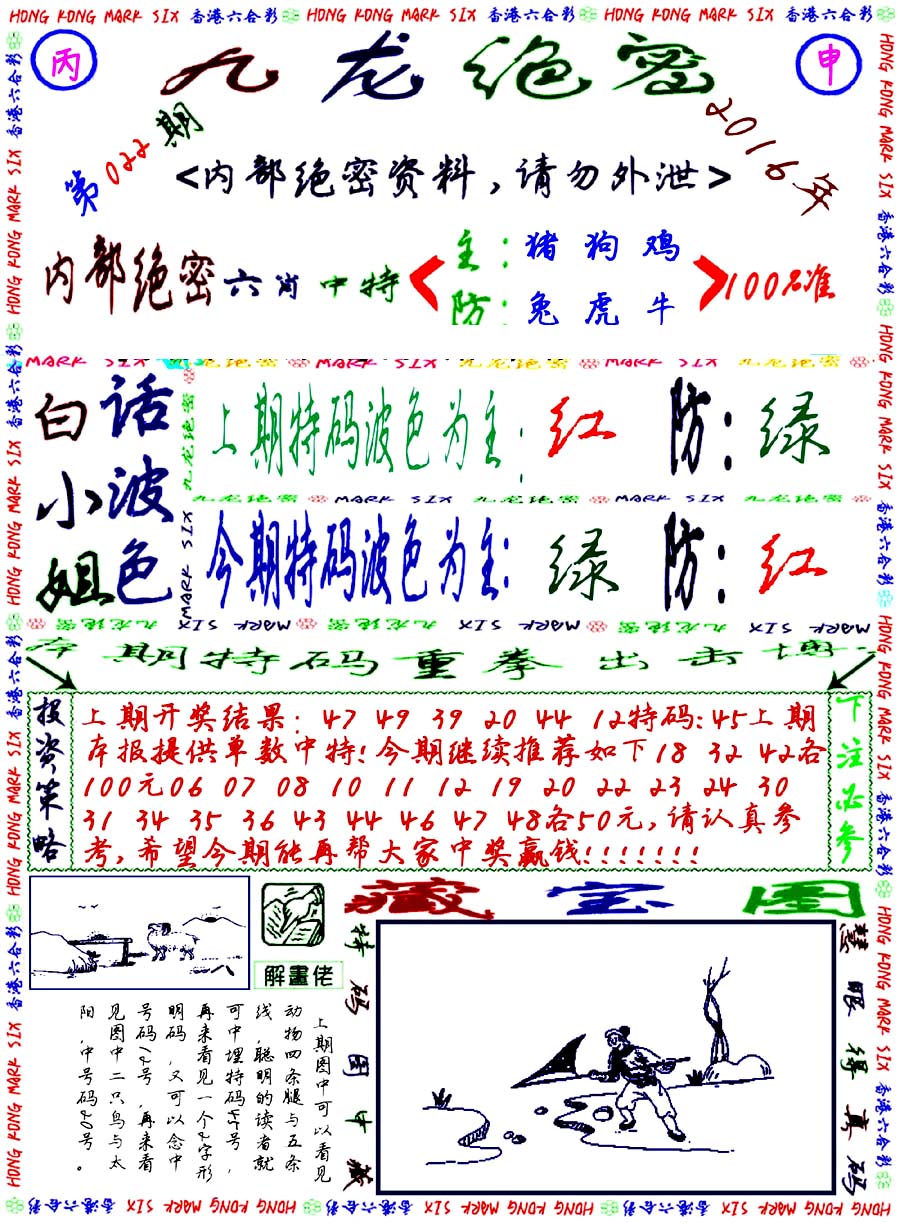 HONG KONG MARK SIX 香港六合彩 HONG KONG MARK SIX 香港六合彩 HONG KONG MARK SIX 香港六合彩
丙
九龙绝密
申
第022期
2016年
<内部绝密资料,请勿外泄>
内部绝密六肖中特
主:猪狗鸡
防:兔虎牛
100%准
MARK SIX 九龙绝密 MARK SIX 九龙绝密 MARK SIX 九龙绝密
白话小波姐色
上期特码波色为主:红 防:绿
九龙绝密 MARK SIX 九龙绝密 MARK SIX 九龙绝密
今期特码波色为主:绿 防:红
九龙绝密 MARK SIX 九龙绝密 MARK SIX 九龙绝密 MARK SIX
本期特码重拳出击博
投资策略
上期开奖结果:47 49 39 20 44 12特码:45上期
本报提供单数中特!今期继续推荐如下18 32 42各
100元06 07 08 10 11 12 19 20 22 23 24 30
31 34 35 36 43 44 46 47 48各50元,请认真参
考,希望今期能再帮大家中奖赢钱!!!!!!!
下注必参
藏宝图
解畫佬
上期图中可以看见
动物四条腿与五条
线,聪明的读者就
可中埋特码45号,
再来看见一个2字形
明码,又可以念中
号码12号,再来看
见图中二只鸟与太
阳,中号码20号。
特码图中藏
慧眼得真码
HONG KONG MARK SIX 香港六合彩 HONG KONG MARK SIX 香港六合彩 HONG KONG MARK SIX 香港六合彩